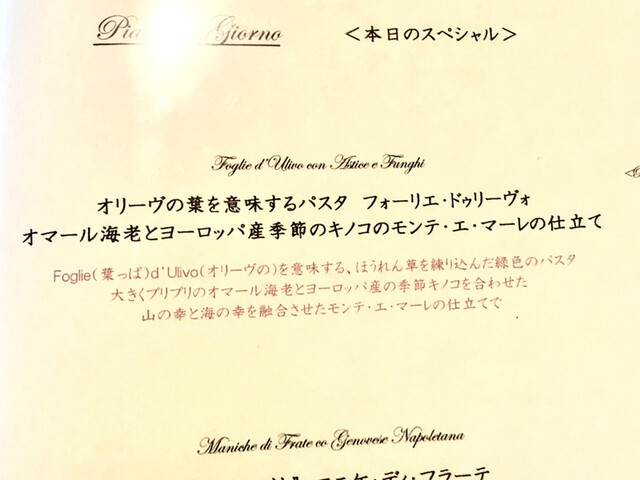 Giorno <本日のスペシャル>
Foglie d'Ulivo con Astice e Funghi
オリーヴの葉を意味するパスタ フォーリエ・ドゥリーヴォ
オマール海老とヨーロッパ産季節のキノコのモンテ・エ・マーレの仕立て
Foglie(葉っぱ)d'Ulivo(オリーヴの)を意味する、ほうれん草を練り込んだ緑色のパスタ
大きくプリプリのオマール海老とヨーロッパ産の季節キノコを合わせた
山の幸と海の幸を融合させたモンテ・エ・マーレの仕立てで
Maniche di Frate co Genovese Napoletana
マニケ・ディ・フラーテ